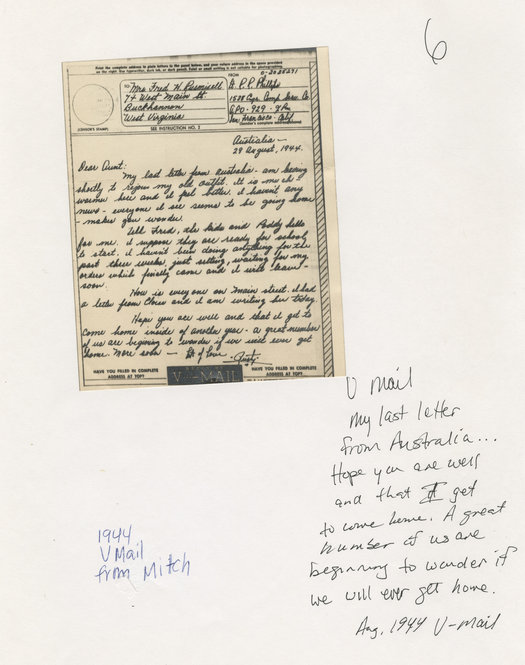 6
Print the complete address in plain letters in the panel below, and your return address in the space provided
on the right. Use typewriter, dark ink, or dark pencil. Faint or small writing is not suitable for photographing.
TO
Mrs. Fred W.
74 West Main St.
Buckhannon
West Virginia
FROM
Lt. P. P. Phillips
1538 Engr. Comp. Serv. Co.
APO - 929 - % Pm
San Francisco - Calif
(Sender's complete address)
(CENSOR'S STAMP)
SEE INSTRUCTION NO. 2
Australia -
29 August, 1944.
Dear Aunt:
My last letter from Australia - am leaving
shortly to rejoin my old outfit. It is much
warmer here and I feel better. I haven't any
news - everyone it seems to be going home
- makes you wonder.
Tell Fred, the kids and Paddy hello
for me. I suppose they are ready for school
to start. I haven't been doing anything for the
past three weeks just setting, waiting for my
orders which finally came and I will leave -
soon.
How is everyone on Main street. I had
a letter from Chris and I am writing her today.
Hope you are well and that I get to
come home inside of another year - a great number
of us are begining to wonder if we will ever get
home. More soon - Lt of love -
HAVE YOU FILLED IN COMPLETE
ADDRESS AT TOP?
V···-MAIL
HAVE YOU FILLED IN COMPLETE
ADDRESS AT TOP?
V Mail
My last letter
from Australia...
Hope you are well
and that I get
to come home. A great
number of us are
beginning to wonder if
we will ever get home.
Aug. 1944 V-Mail
1944
V Mail
from Mitch